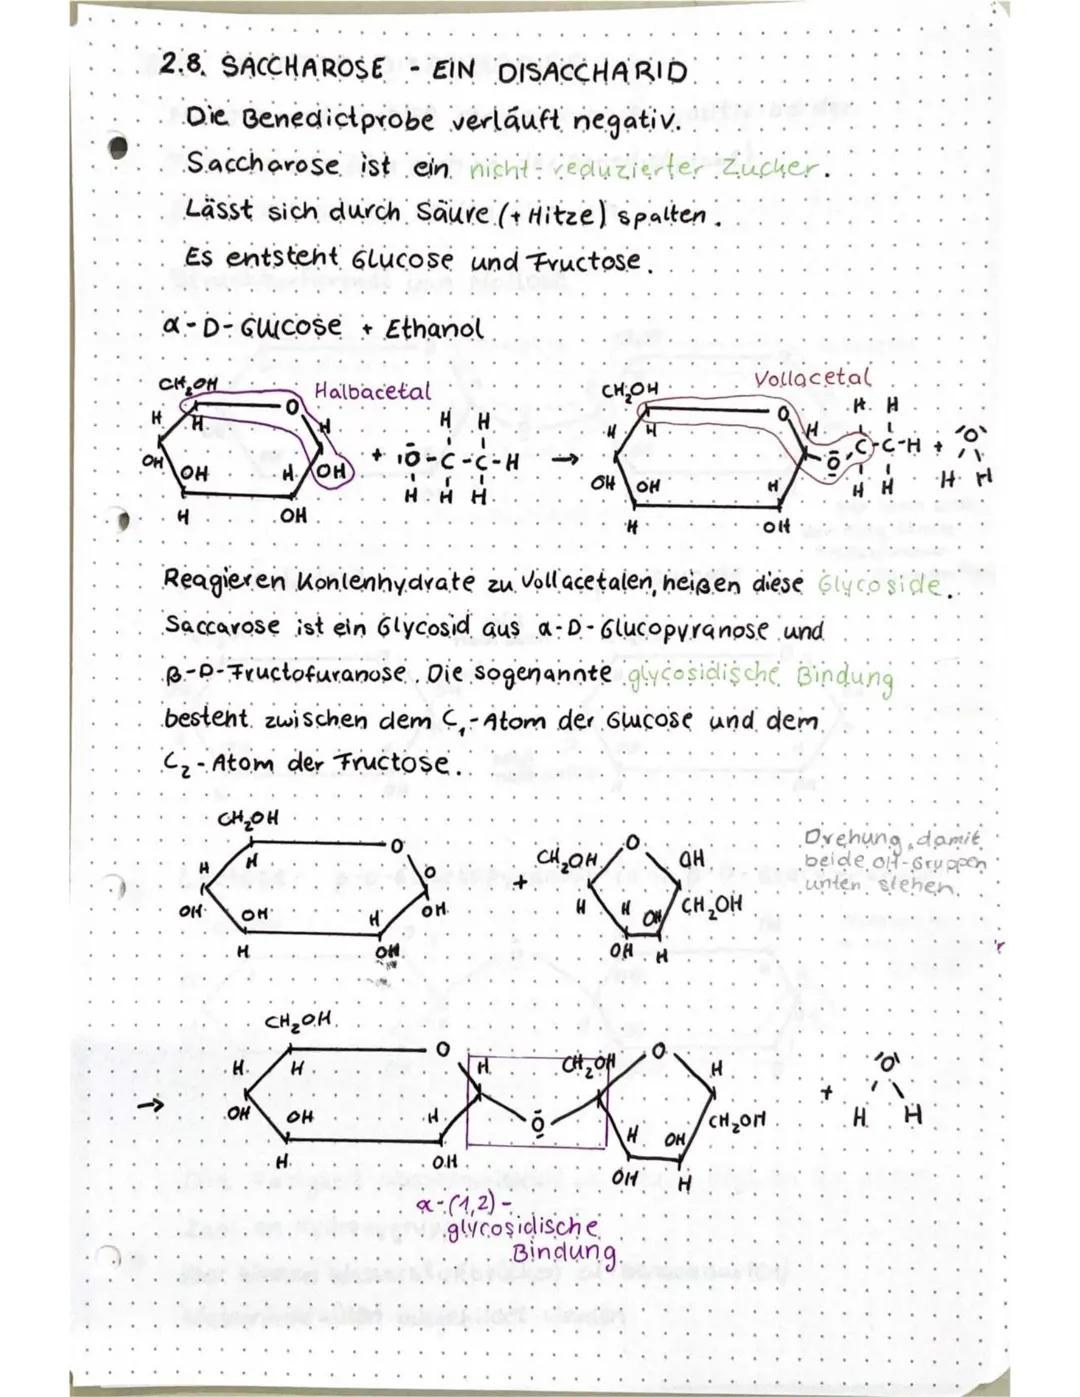 2.8. SACCHAROSE - EIN DISACCHARID
Die Benedictprobe verläuft negativ.
Saccharose ist ein nicht-reduzierter Zucker.
Lässt sich durch Säure (+ Hitze) spalten.
Es entsteht Glucose und Fructose.
α-D-Glucose + Ethanol
CH₂OH Halbacetal CH₂OH Vollacetal
H H O H H H H H O H H H O
OH OH H OH + O-C-C-H → OH OH H O C-C-H + H H
H OH H H H H OH H H
Reagieren Kohlenhydrate zu Vollacetalen, heißen diese Glycoside.
Saccarose ist ein Glycosid aus α-D-Glucopyranose und
β-D-Fructofuranose. Die sogenannte glycosidische Bindung
besteht zwischen dem C₁-Atom der Glucose und dem
C₂-Atom der Fructose.
CH₂OH O CH₂OH O OH
Drehung, damit
beide OH-Gruppen
unten stehen.
H H O + H H OH CH₂OH
OH OH H OH
H OH OH H
CH₂OH O H CH₂OH O H O
→ H H H O H OH CH₂OH + H H
OH OH
H OH OH H
α-(1,2)-
glycosidische
Bindung.